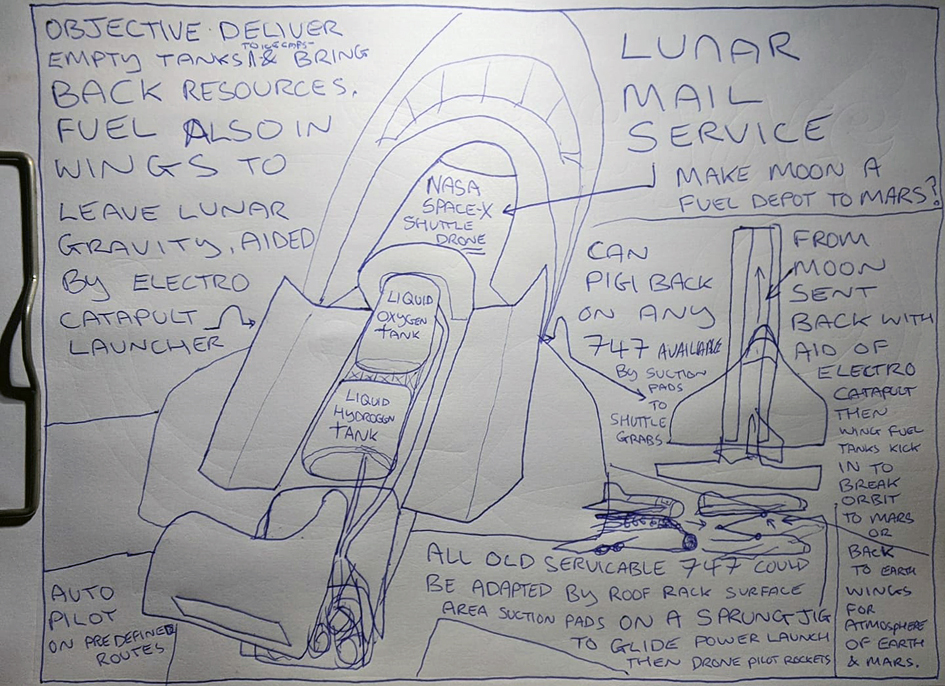 OBJECTIVE DELIVER
TO ICE CAPS
EMPTY TANKS & BRING
BACK RESOURCES.
FUEL ALSO IN
WINGS TO
LEAVE LUNAR
GRAVITY, AIDED
BY ELECTRO
CATAPULT
LAUNCHER
LUNAR
MAIL
SERVICE
MAKE MOON A
FUEL DEPOT TO MARS?
NASA
SPACE-X
SHUTTLE
DRONE
LIQUID
OXYGEN
TANK
LIQUID
HYDROGEN
TANK
CAN
PIGI BACK
ON ANY
747 AVAILABLE
BY SUCTION
PADS
TO
SHUTTLE
GRABS
FROM
MOON
SENT
BACK WITH
AID OF
ELECTRO
CATAPULT
THEN
WING FUEL
TANKS KICK
IN TO
BREAK
ORBIT
TO MARS
OR
BACK
TO EARTH
WINGS
FOR
ATMOSPHERE
OF EARTH
& MARS.
ALL OLD SERVICABLE 747 COULD
BE ADAPTED BY ROOF RACK SURFACE
AREA SUCTION PADS ON A SPRUNG JIG
TO GLIDE POWER LAUNCH
THEN DRONE PILOT ROCKETS
AUTO
PILOT
ON PREDEFINED
ROUTES